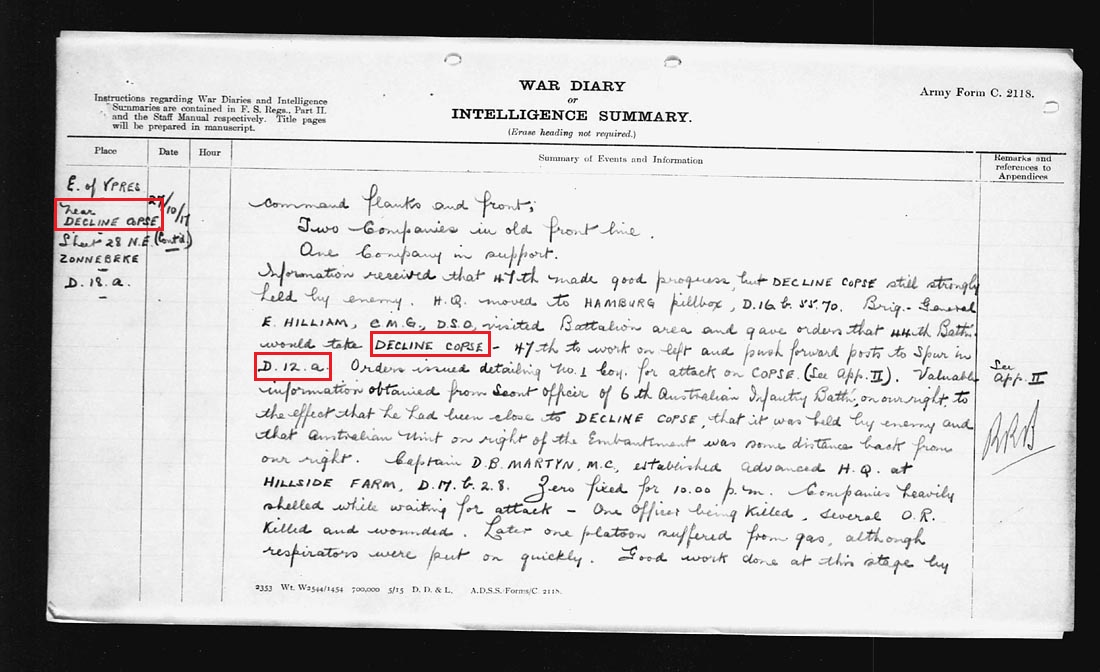 WAR DIARY
or
INTELLIGENCE SUMMARY.
(Erase heading not required.)
Army Form C. 2118.
Instructions regarding War Diaries and Intelligence
Summaries are contained in F. S. Regs., Part II.
and the Staff Manual respectively. Title pages
will be prepared in manuscript.
Place
Date
Hour
Summary of Events and Information
Remarks and
references to
Appendices
E. of YPRES
near
DECLINE COPSE
Sheet 28 N.E.
ZONNEBEKE
D.18.a.
27/10/17
(Cont'd)
command flanks and front;
Two Companies in old front line.
One Company in support.
Information received that 47th made good progress, but DECLINE COPSE still strongly
held by enemy. H.Q. moved to HAMBURG pillbox, D.16.b.55.70. Brig-General
E. HILLIAM, C.M.G., D.S.O, visited Battalion area and gave orders that 44th Battn.
would take DECLINE COPSE - 47th to work on left and push forward posts to Spur in
D.12.a. Orders issued detailing No.1 Coy. for attack on COPSE. (See App. II). Valuable
information obtained from Scout Officer of 6th Australian Infantry Battn, on our right, to
the effect that he had been close to DECLINE COPSE, that it was held by enemy and
that Australian Unit on right of the Embankment was some distance back from
our right. Captain D.B. MARTYN, M.C., established advanced H.Q. at
HILLSIDE FARM, D.17.b.2.8. Zero fixed for 10.00 p.m. Companies heavily
shelled while waiting for attack - One Officer being killed, several O.R.
killed and wounded. Later one platoon suffered from gas, although
respirators were put on quickly. Good work done at this stage by
See
App. II
RRB
2353 Wt. W2544/1454 700,000 5/15 D. D. & L. A.D.S.S./Forms/C. 2118.